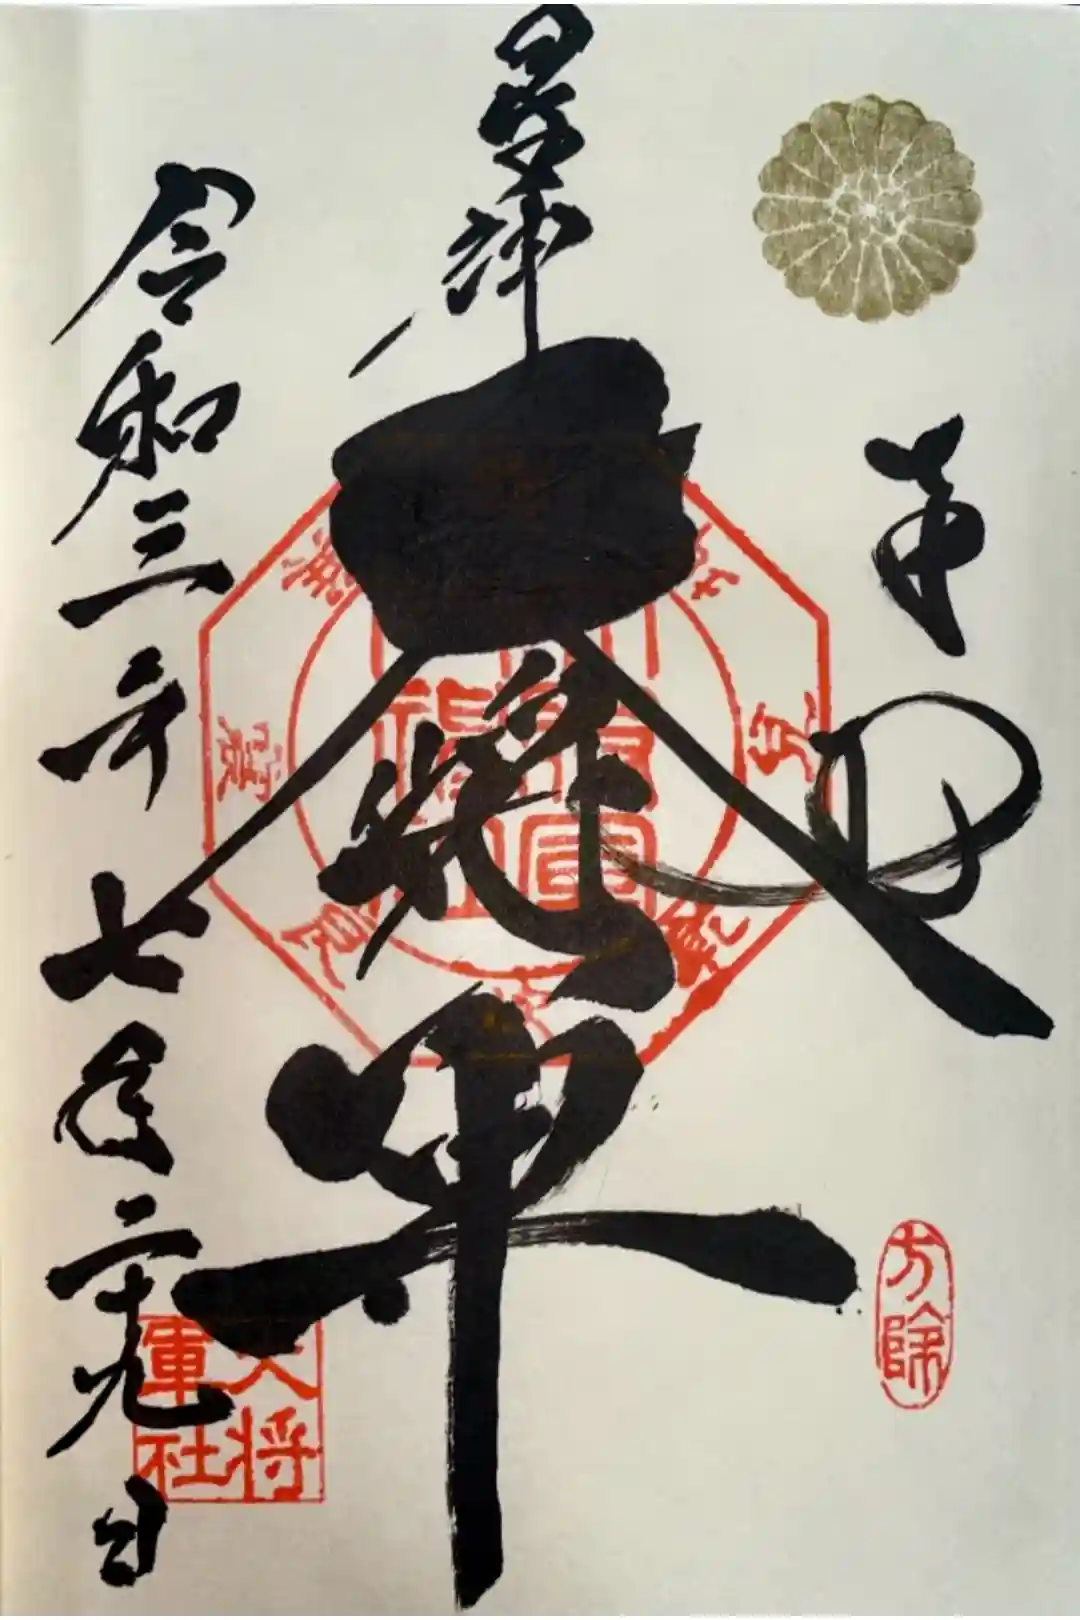 奉拝
方除
星神
大将軍
令和三年七月二十九日
大将
軍社